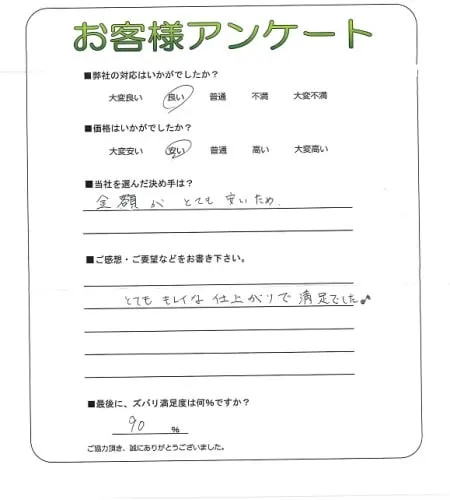 お客様アンケート
■弊社の対応はいかがでしたか?
大変良い 良い 普通 不満 大変不満
■価格はいかがでしたか?
大変安い 安い 普通 高い 大変高い
■当社を選んだ決め手は?
金額が とても 安いため.
■ご感想・ご要望などをお書き下さい。
とても キレイな 仕上がりで 満足でした♪
■最後に、ズバリ満足度は何%ですか?
90 %
ご協力頂き、誠にありがとうございました。